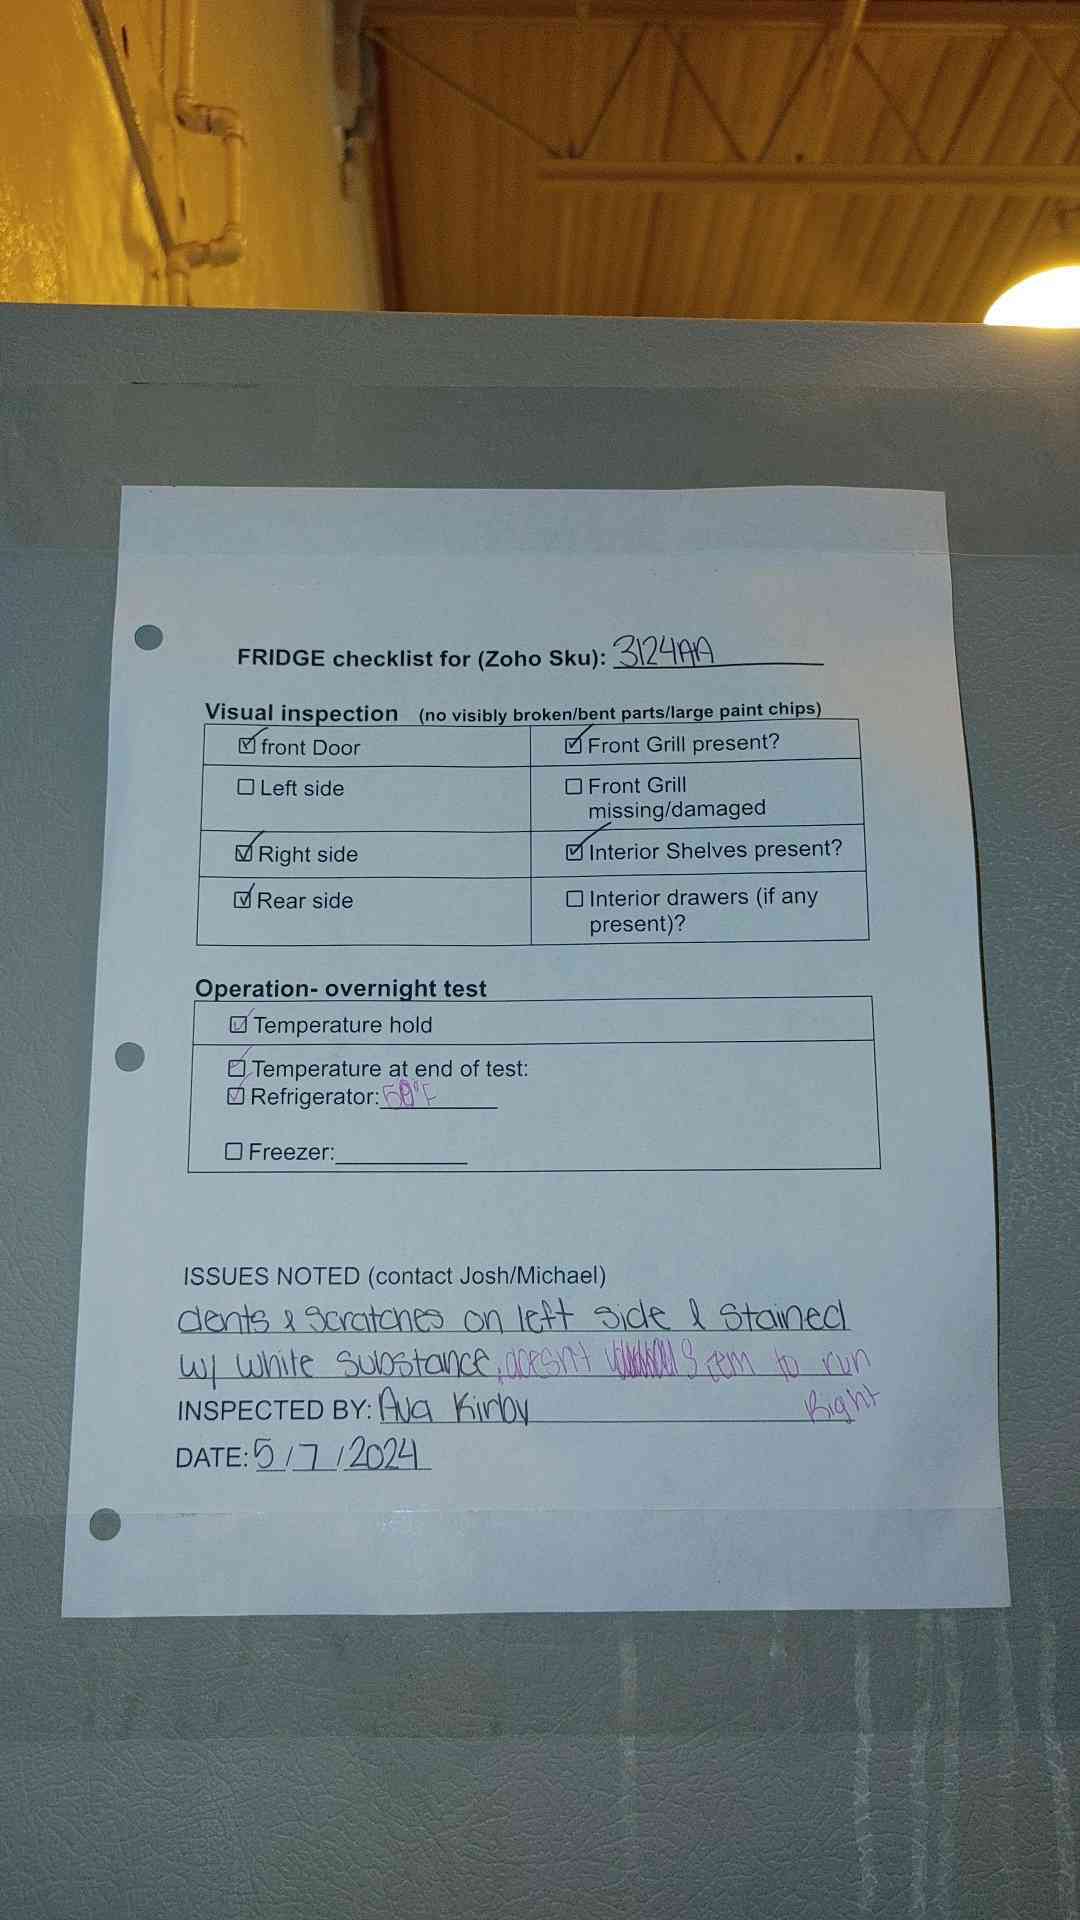 FRIDGE checklist for (Zoho Sku): 3124AA
Visual inspection (no visibly broken/bent parts/large paint chips)
☑ front Door ☑ Front Grill present?
☐ Left side ☐ Front Grill
missing/damaged
☑ Right side ☑ Interior Shelves present?
☑ Rear side ☐ Interior drawers (if any
present)?
Operation- overnight test
☑ Temperature hold
☑ Temperature at end of test:
☑ Refrigerator: °F
☐ Freezer:
ISSUES NOTED (contact Josh/Michael)
dents & scratches on left side & Stained
w/ white substance, doesn't Seem to run
Right
INSPECTED BY: Ava Kirby
DATE: 5/7/2024